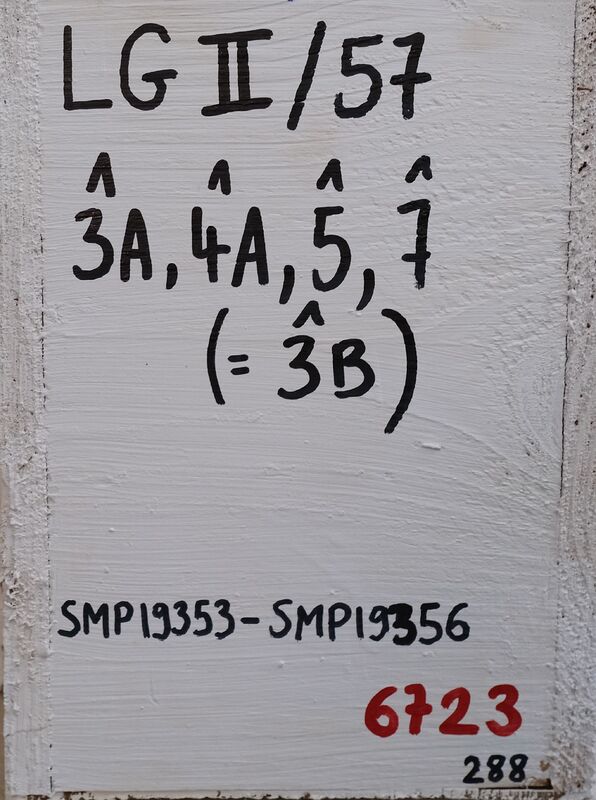 LG II/57
3̂A, 4̂A, 5̂, 7̂
(= 3̂B)
SMP19353-SMP19356
6723
288